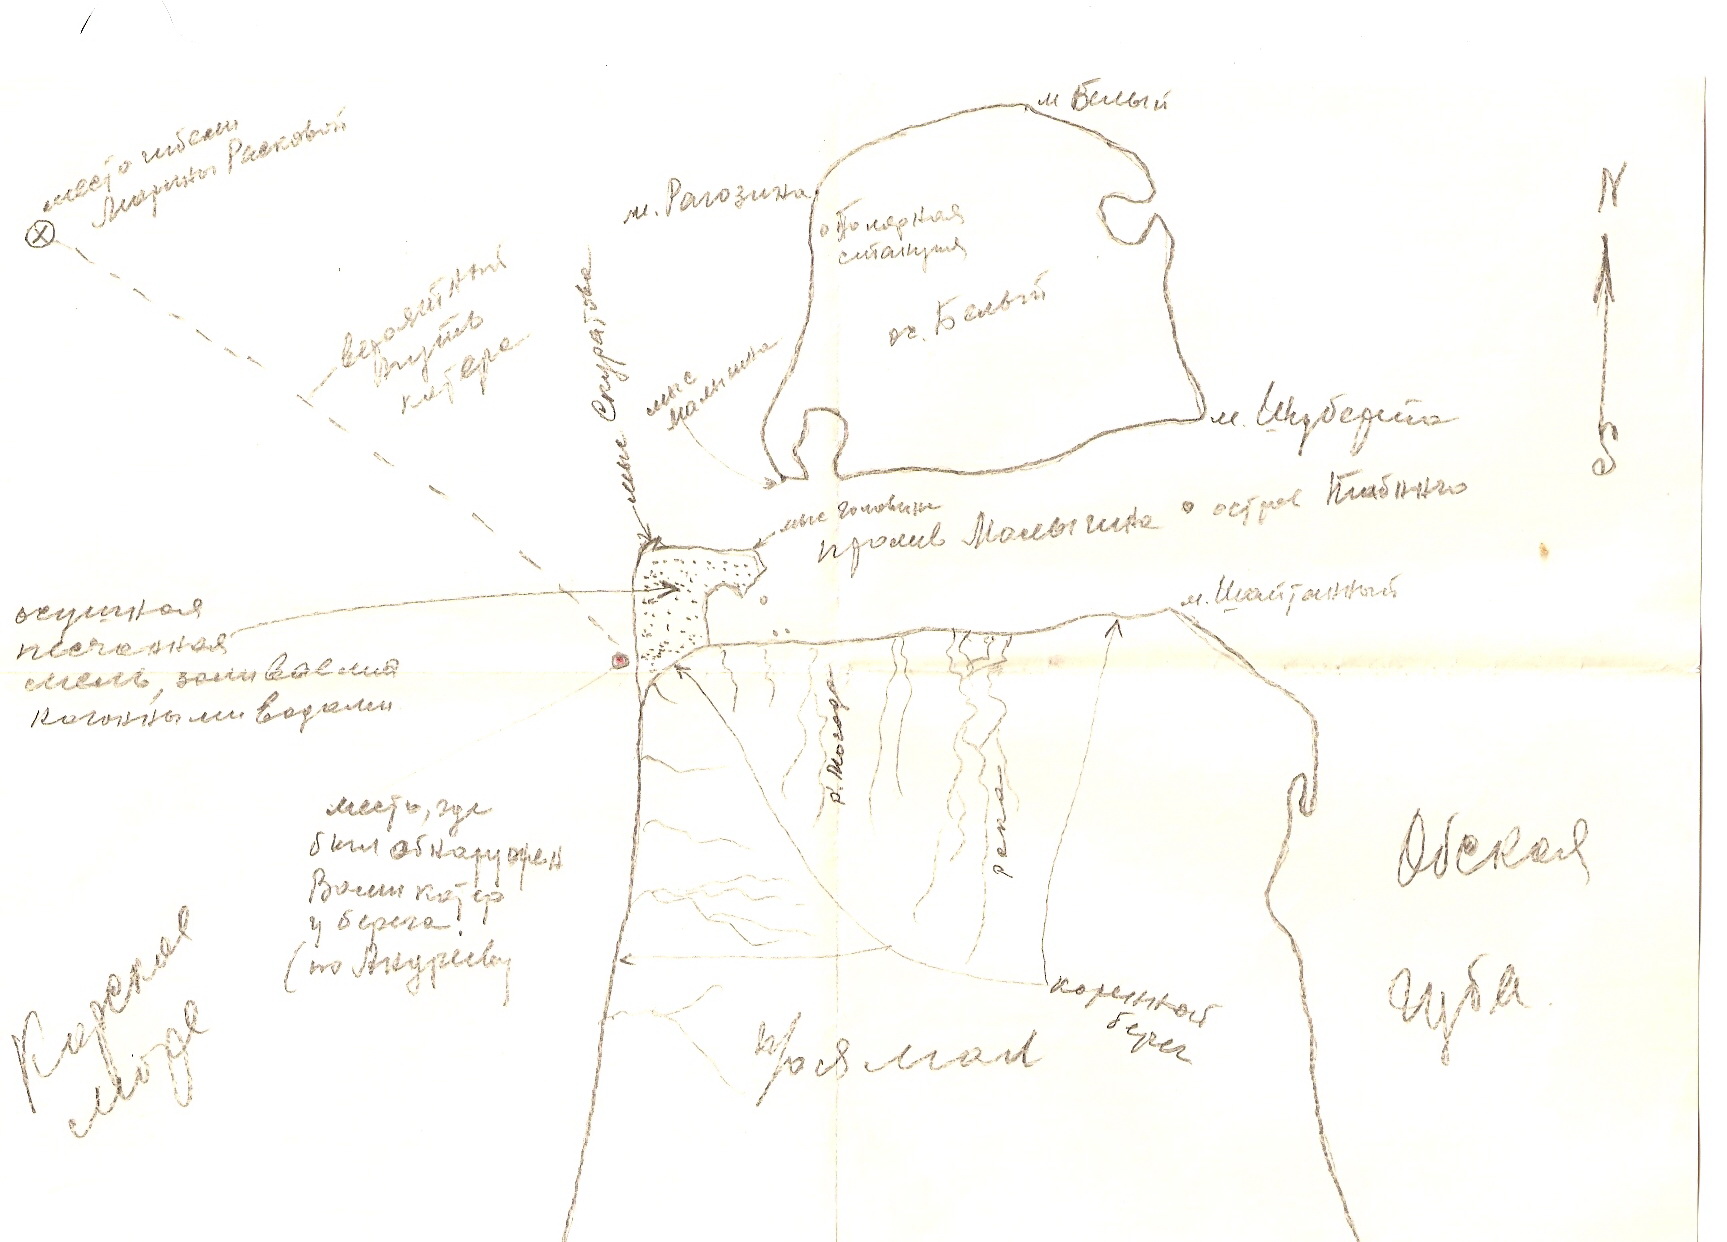 м Белый
место гибели
Марины Расковой
N
м. Рагозина
Полярная
станция
вероятный
путь
катера
мыс Скуратова
о. Белый
мыс
Малыгина
м. Шуберта
S
мыс Головина
пролив Малыгина
остров
м. Шайтанный
осушная
песчаная
мель, заливаемая
нагонными водами
р.
место, где
был обнаружен
Вами катер
у берега
(по Андрееву
Река
Обская
губа
Карское
море
коренной
берег